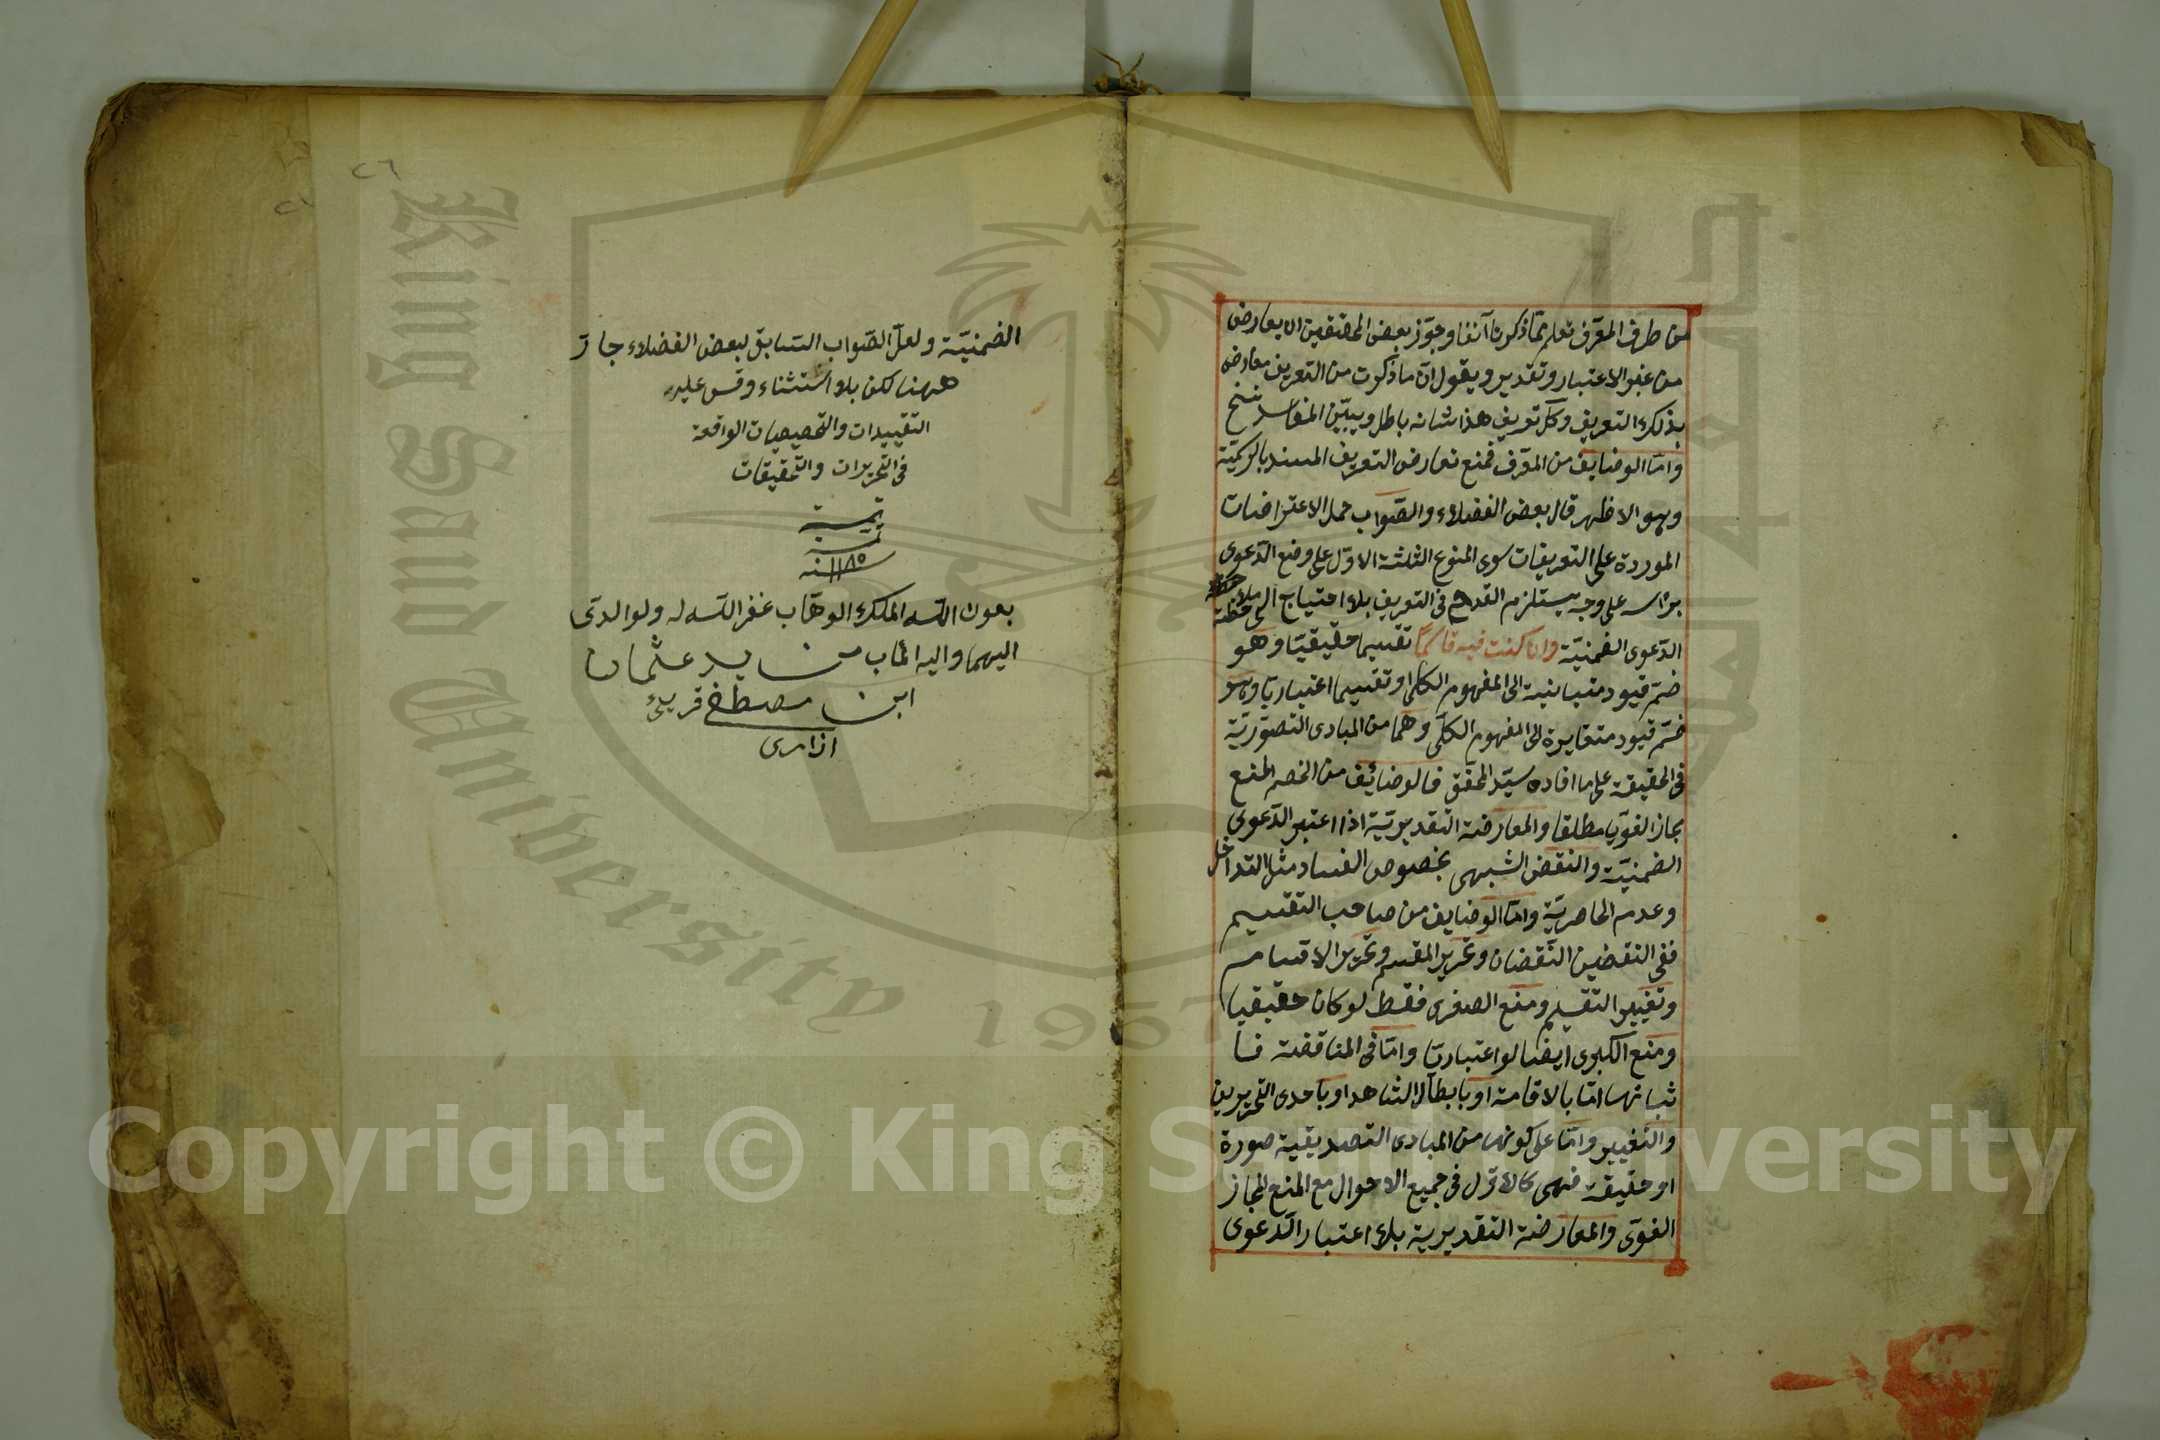 من طرف المعرف تعلم مما ذكرنا آنفا وجوز بعض المحققين ان يعارض
من غير الاعتبار وتقدير ويقول ان ما ذكرت من التعريف معارض
بذلك التعريف وكل تعريف هذا شانه باطل ويبين المفاسد
واما الوضايف من المعرف فمنع تعارض التعريف المسند بالرسمية
وهو الاظهر قال بعض الفضلاء والصواب حمل الاعتراضات
الموردة على التعريفات سوى المنوع الثلثة الاول على وضع الدعوى
براسه على وجه يستلزم القدح في التعريف بلا احتياج الى ملاحظة
الدعوى الضمنية وان كنت فيه قاسما تقسيما حقيقيا وهو
ضم قيود متباينة الى المفهوم الكلى او تقسيما اعتباريا وهو
ضم قيود متغايرة الى المفهوم الكلى وهما من المبادى التصورية
في الحقيقة على ما افاده سيد المحقق فالوضائف من الخصم المنع
مجاز الغويا مطلقا والمعارضة التقديرية اذا اعتبر الدعوى
الضمنية والنقض الشبهى بخصوص الفساد مثل التداخل
وعدم الحاصرية واما الوضايف من صاحب التقسيم
ففى النقضين النقضان وتحرير المقسم وتحرير الاقسام
وتغيير التقسيم ومنع الصغرى فقط لو كان حقيقيا
ومنع الكبرى ايضا لو اعتباريا واما في المناقضة فا
ثباتها اما بالاقامة او بابطال الشاهد او باحدى التحريرين
والتغيير واما على كونها من المبادى التصديقية صورة
او حقيقة فهى كالاول في جميع الاحوال مع المنع المجاز
الغوى والمعارضة التقديرية بلا اعتبار الدعوى
٢٦
الضمنية ولعل الصواب السابق لبعض الفضلاء جار
ههنا لكن بلا استثناء وقس عليه
التقييدات والتخصيصات الواقعة
في التحريرات والتحقيقات
تمت
تمت
سنه ١١٨٥
بعون الله الملك الوهاب غفر الله له ولوالدى
اليهما واليه المآب من يد عثمان
ابن مصطفى